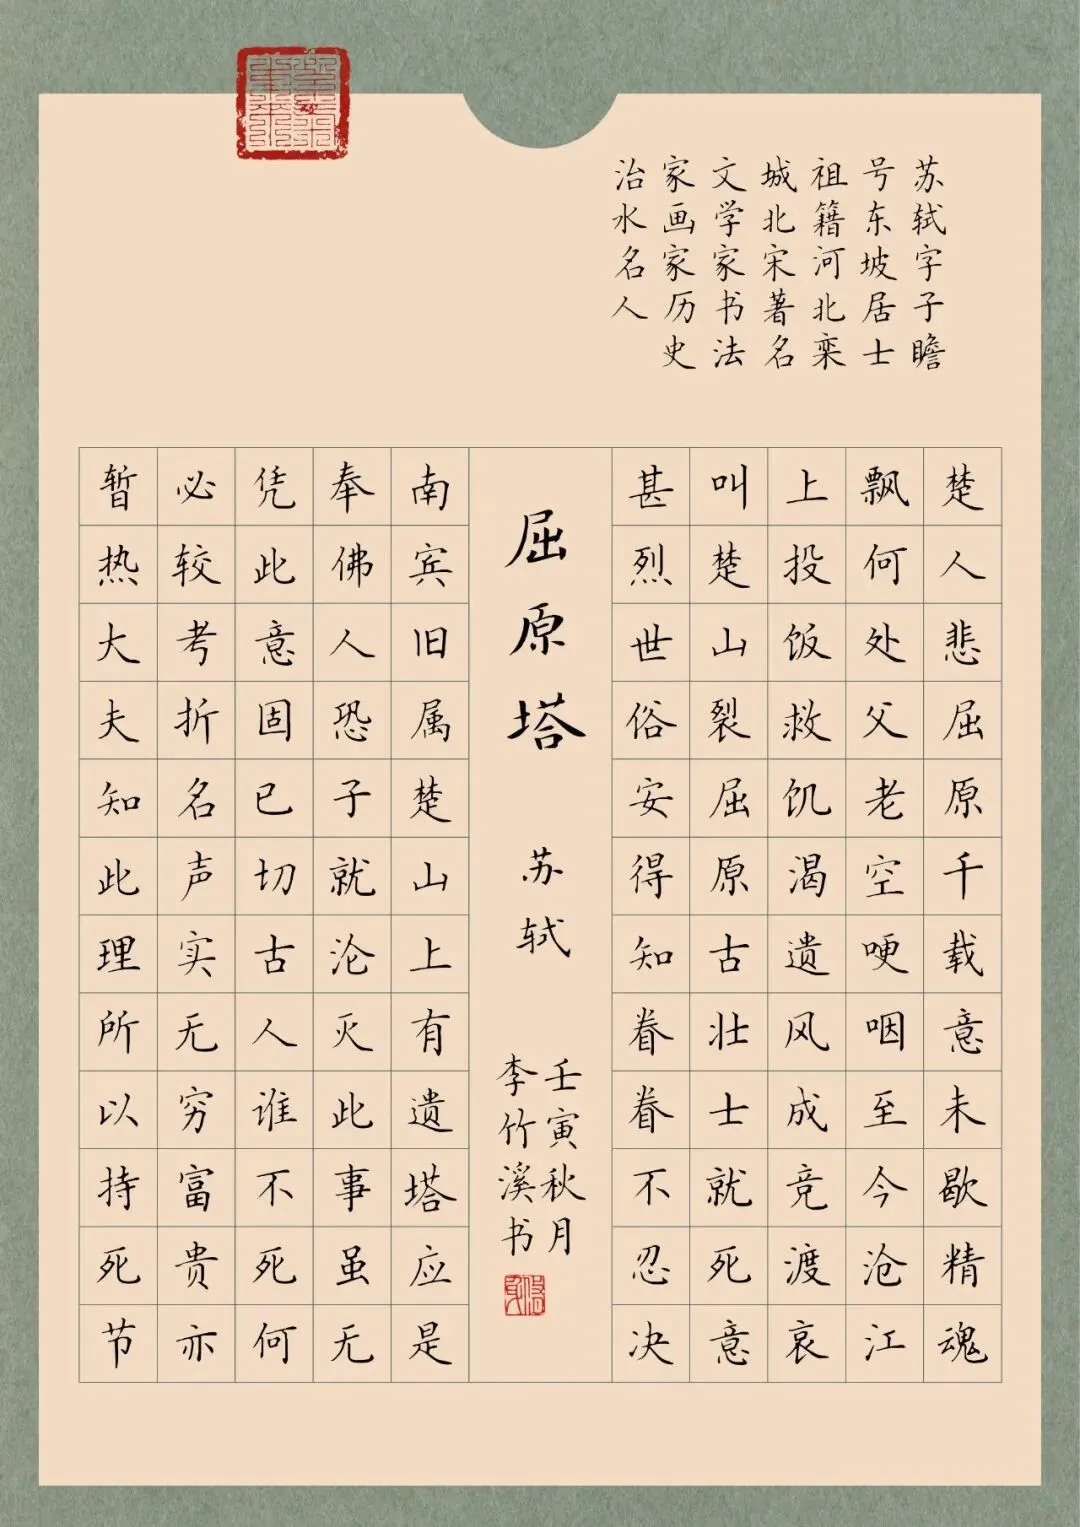 苏轼字子瞻
号东坡居士
祖籍河北栾
城北宋著名
文学家书法
家画家历史
治水名人
楚人悲屈原千载意未歇精魂
飘何处父老空哽咽至今沧江
上投饭救饥渴遗风成竞渡哀
叫楚山裂屈原古壮士就死意
甚烈世俗安得知眷眷不忍决
屈原塔
苏轼
壬寅秋月
李竹溪书
南宾旧属楚山上有遗塔应是
奉佛人恐子就沦灭此事虽无
凭此意固已切古人谁不死何
必较考折名声实无穷富贵亦
暂热大夫知此理所以持死节